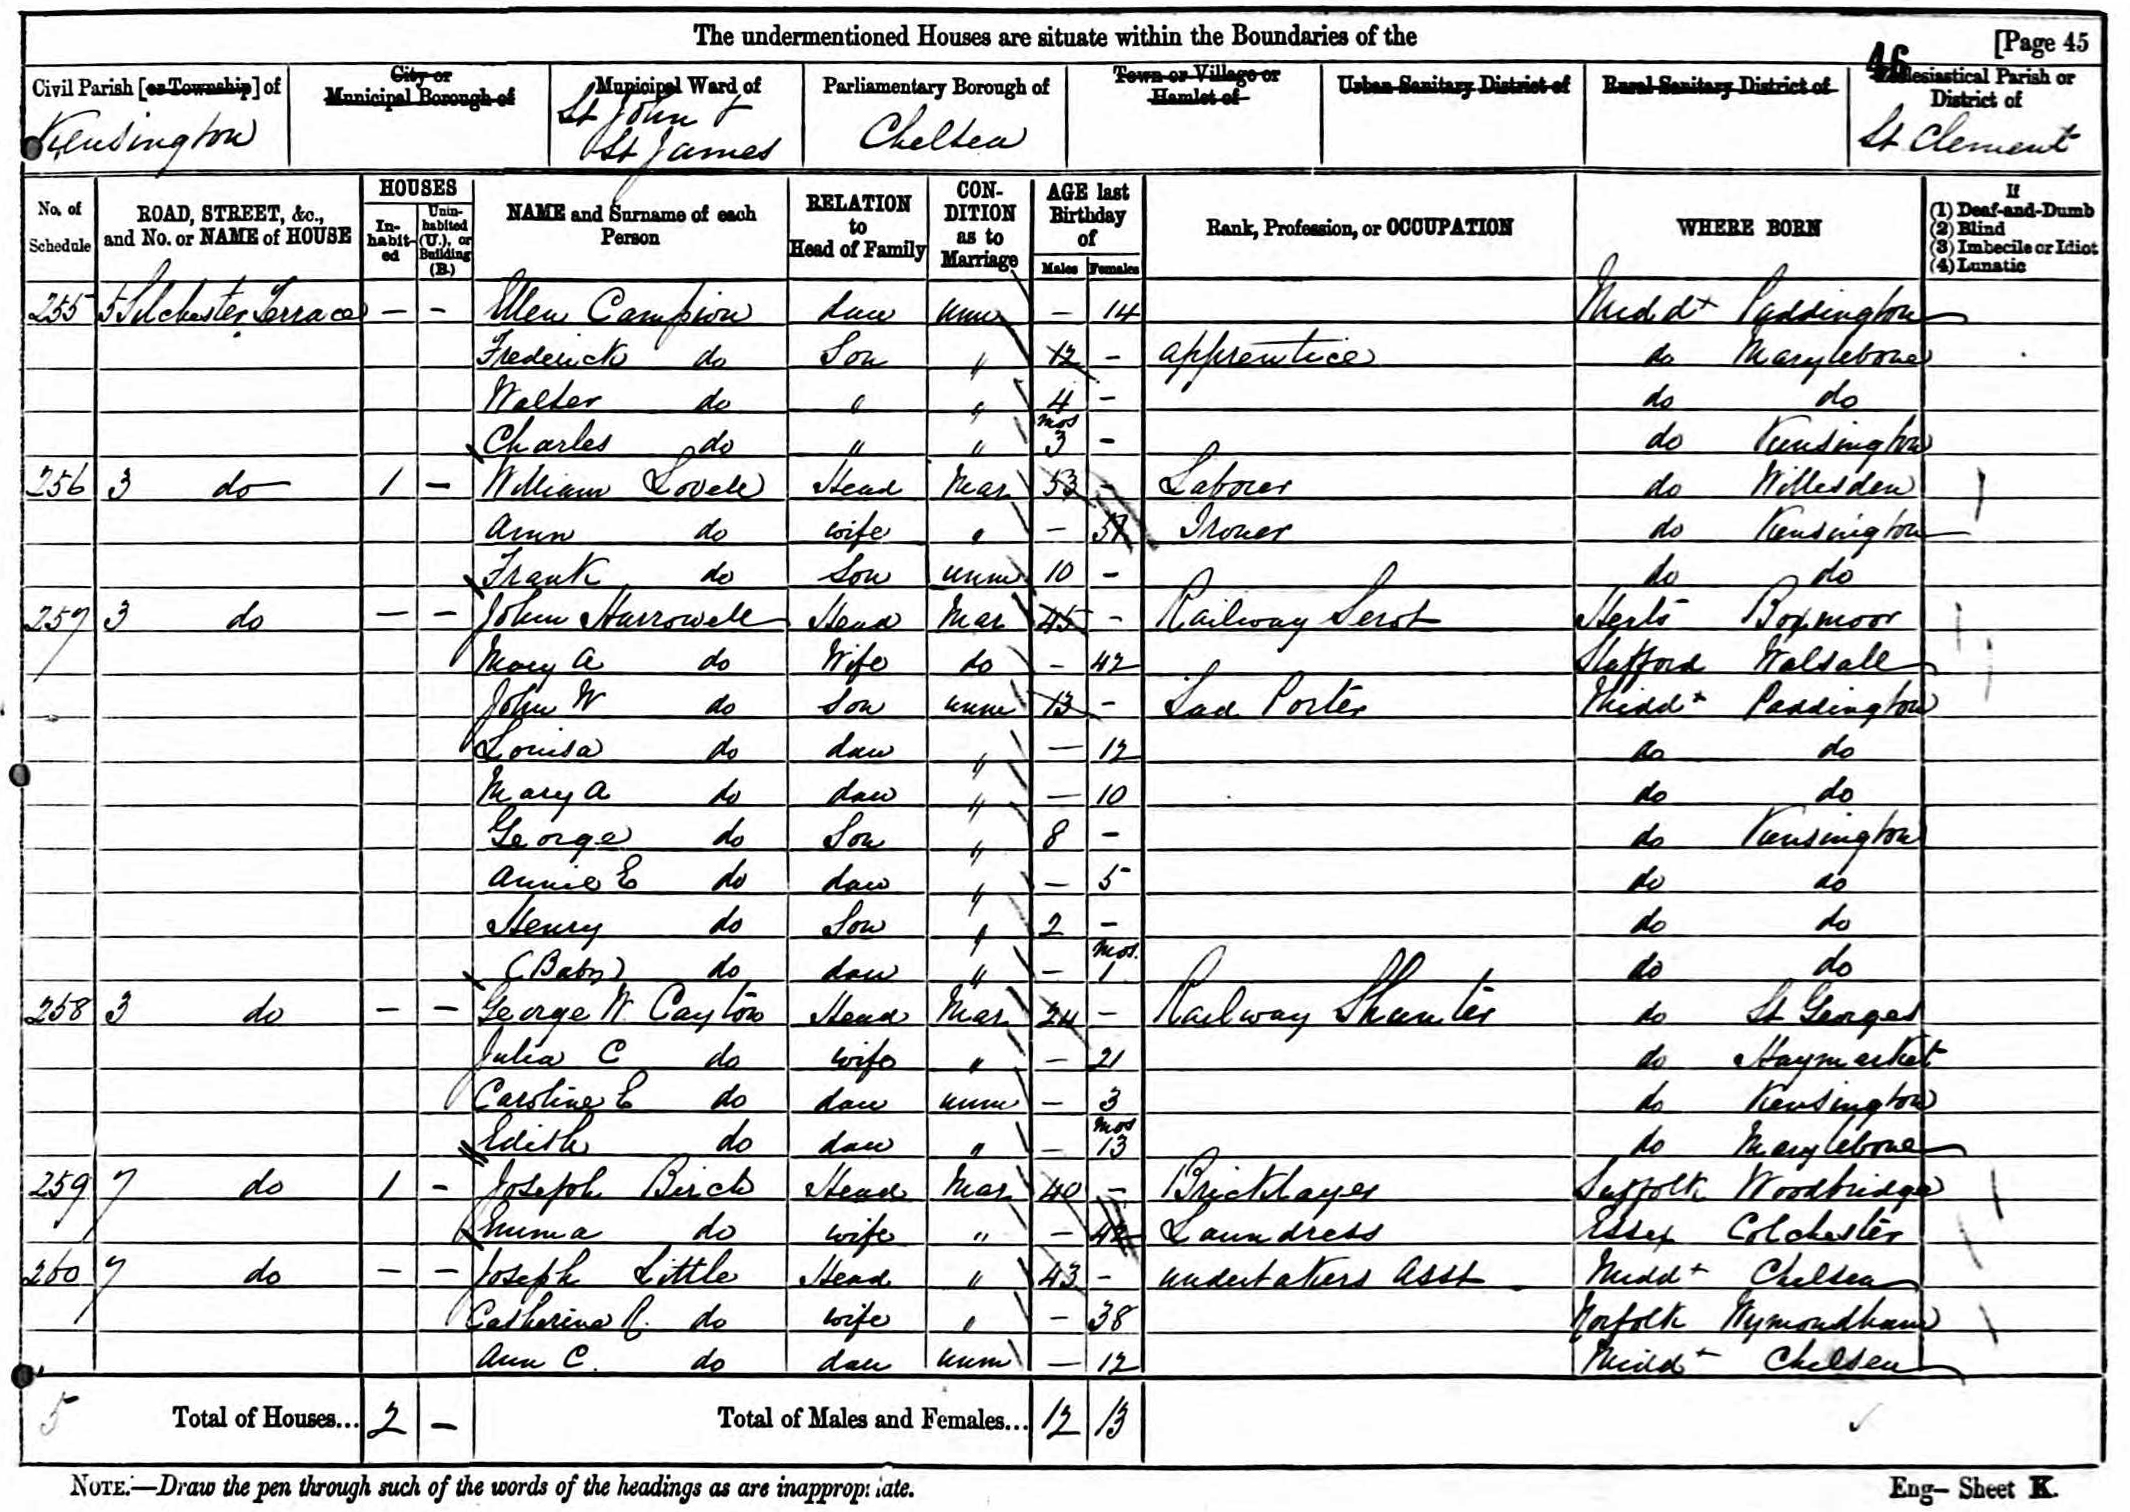 The undermentioned Houses are situate within the Boundaries of the
46 [Page 45
Civil Parish [or Township] of
City or Municipal Borough of
Municipal Ward of
Parliamentary Borough of
Town or Village or Hamlet of
Urban Sanitary District of
Rural Sanitary District of
Ecclesiastical Parish or District of
Kensington St John & St James Chelsea St Clement
No. of Schedule
ROAD, STREET, &c., and No. or NAME of HOUSE
HOUSES
Inhabited
Uninhabited (U.), or Building (B.)
NAME and Surname of each Person
RELATION to Head of Family
CONDITION as to Marriage
AGE last Birthday of
Males Females
Rank, Profession, or OCCUPATION
WHERE BORN
If
(1) Deaf-and-Dumb
(2) Blind
(3) Imbecile or Idiot
(4) Lunatic
255 5 Silchester Terrace — - Ellen Campion daw unm — 14 Middx Paddington
Frederick do Son " 12 - apprentice do Marylebone
Walter do " " 4 - do do
Charles do " " mos 3 - do Kensington
256 3 do 1 - William Lovell Head Mar 53 - Laborer do Willesden
Ann do wife " — Ironer do Kensington
Frank do Son unm 10 - do do
257 3 do — - John Harrowell Head Mar 45 - Railway Servt Herts Boxmoor
Mary A do Wife do - 42 Stafford Walsall
John W do Son unm 13 - Lad Porter Middx Paddington
Louisa do daw " — 12 do do
Mary A do daw " — 10 do do
George do Son " 8 - do Kensington
Annie E do daw " — 5 do do
Henry do Son " 2 - do do
(Baby) do daw " — mos. 1 do do
258 3 do — - George W Cayton Head Mar 24 - Railway Shunter do St Georges
Julia C do wife " — 21 do Haymarket
Caroline E do daw unm — 3 do Kensington
Edith do daw " — mos 13 do Marylebone
259 7 do 1 - Joseph Birch Head Mar 40 - Bricklayer Suffolk Woodbridge
Emma do wife " — 42 Laundress Essex Colchester
260 7 do — - Joseph Little Head " 43 - undertakers asst Middx Chelsea
Catherine R. do wife " — 38 Norfolk Wymondham
Ann C. do daw unm — 12 Middx Chelsea
5 Total of Houses... 2 - Total of Males and Females... 12 13
NOTE.—Draw the pen through such of the words of the headings as are inappropriate.
Eng— Sheet K.